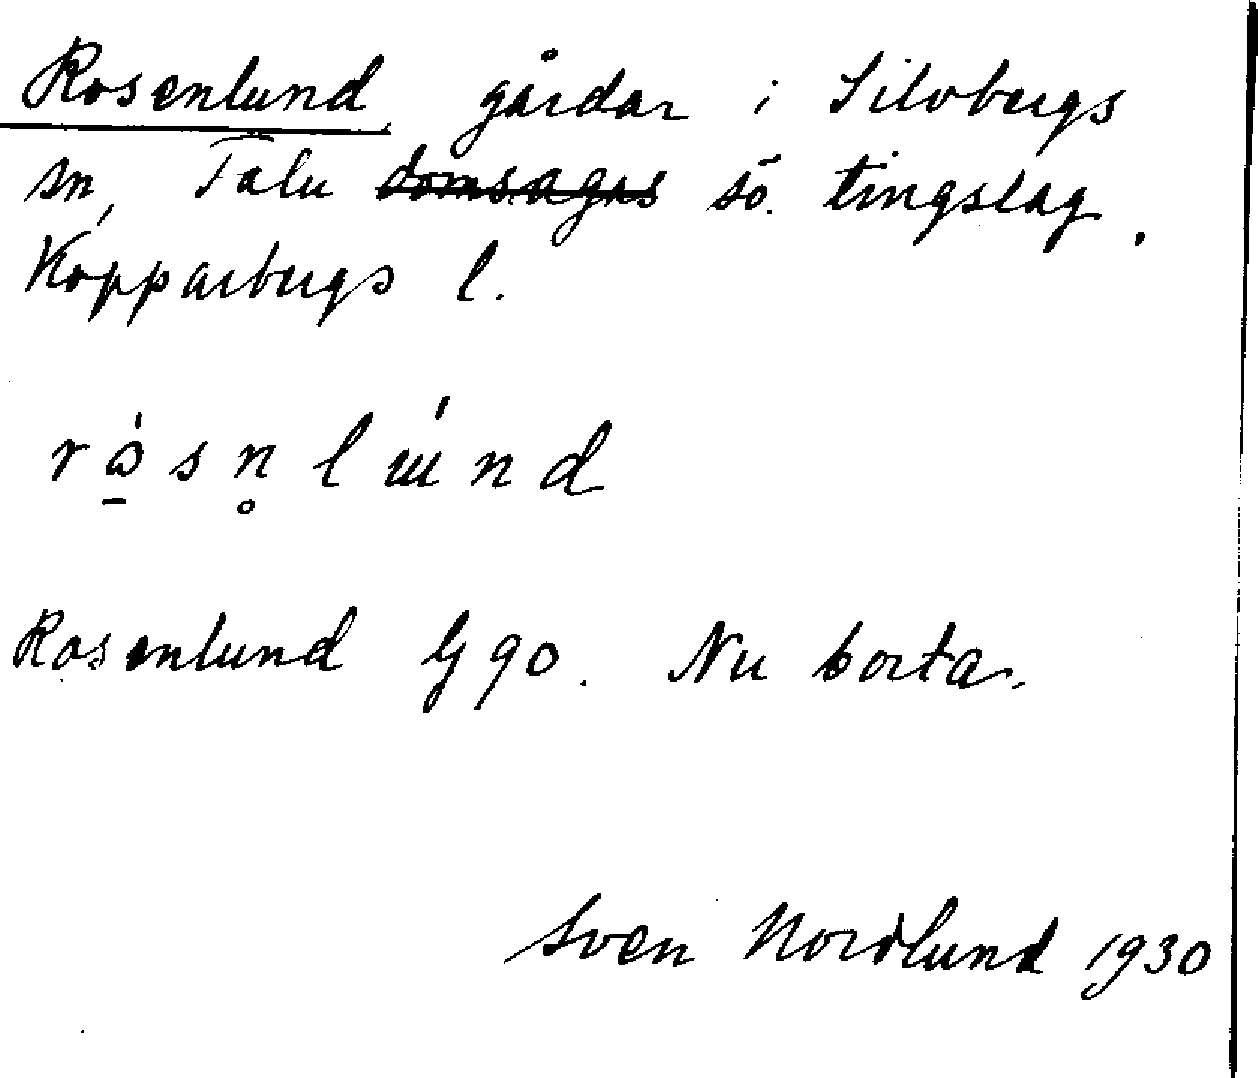 Rosenlund gårdar i Silvbergs
sn, Falu ~~domsagas~~ sö. tingslag,
Kopparbergs l.
rósn̥lúnd
Rosenlund G 90. Nu borta.
Sven Nordlund 1930